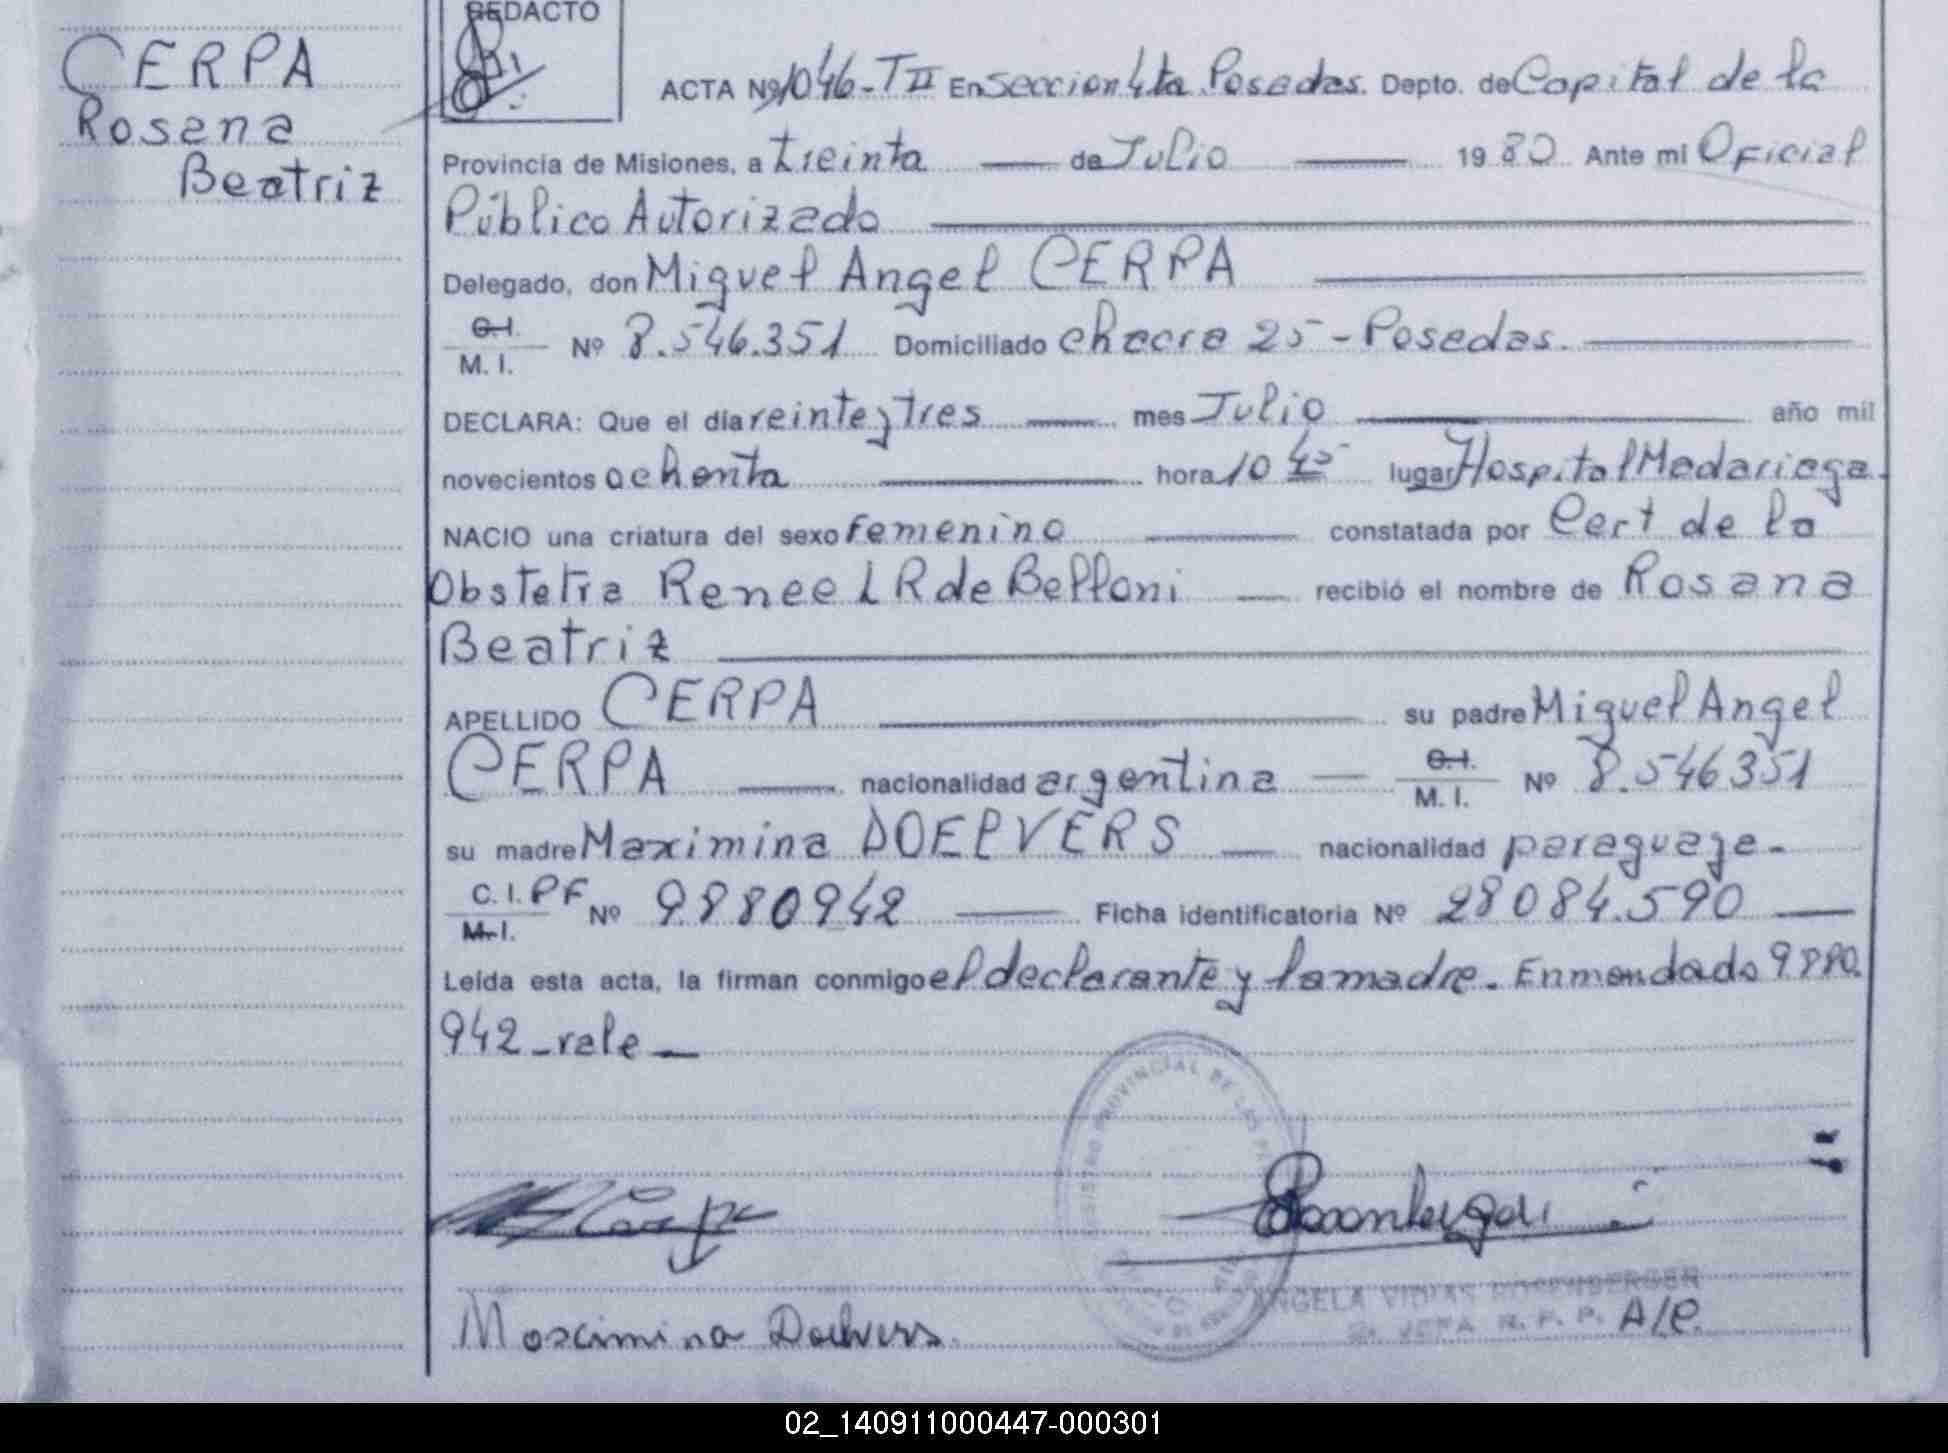 CERPA
Rosana
Beatriz
REDACTO
ACTA Nº 1046-TII En Seccion 4ta Posadas. Depto. de Capital de la
Provincia de Misiones, a treinta de Julio 1980 Ante mi Oficial
Público Autorizado
Delegado, don Miguel Angel CERPA
C.I.
M. I. Nº 8.546.351 Domiciliado chacra 25 - Posadas.
DECLARA: Que el día veinte y tres mes Julio año mil
novecientos ochenta hora 10 45 lugar Hospital Madariaga.
NACIO una criatura del sexo femenino constatada por Cert de la
Obstetra Renee L R de Belloni recibió el nombre de Rosana
Beatriz
APELLIDO CERPA su padre Miguel Angel
CERPA nacionalidad argentina C.I.
M. I. Nº 8.546351
su madre Maximina DOELVERS nacionalidad paraguaya-
C. I. PF
M. I. Nº 9880942 Ficha identificatoria Nº 28084.590
Leída esta acta, la firman conmigo el declarante y la madre. Enmendado 9.880.
942-vale
REGISTRO PROVINCIAL DE LAS
Maximina Doelvers.
ANGELA ROSENBERGER
JEFA R. P. P. A/C.
02_140911000447-000301